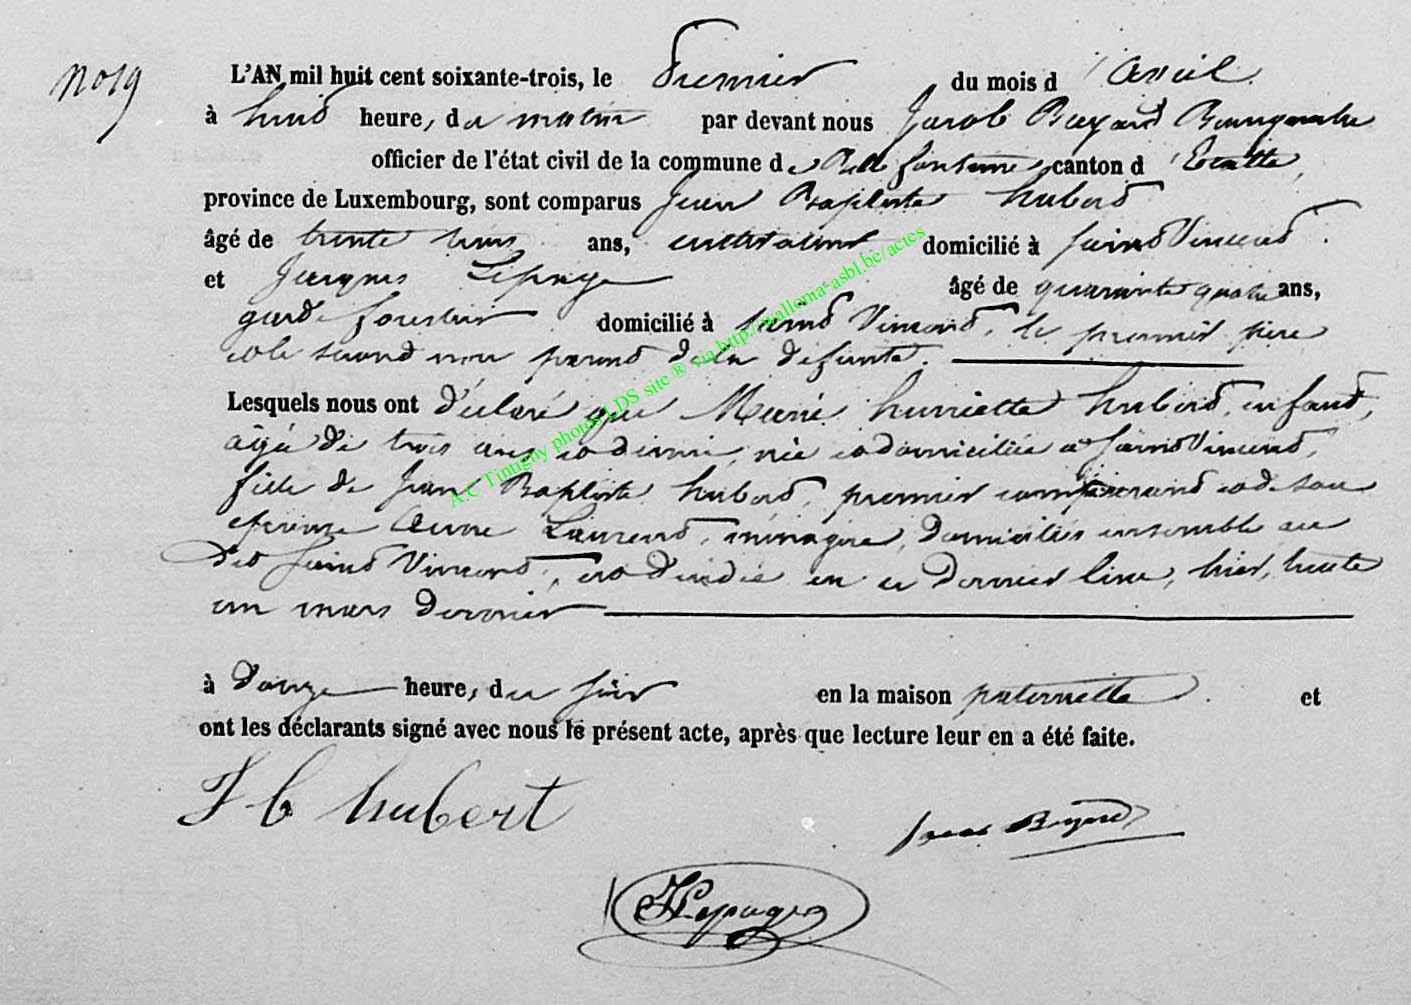 No 19
L'AN mil huit cent soixante-trois, le premier du mois d'avril
à huit heure, du matin par devant nous Jacob Bayard Bourgmestre
officier de l'état civil de la commune de Bellefontaine canton d'Etalle,
province de Luxembourg, sont comparus Jean Baptiste hubert
âgé de trente trois ans, cultivateur domicilié à saint Vincent.
et Jacques Lepage âgé de quarante quatre ans,
garde forestier domicilié à saint Vincent, le premier père
et le second non parent de la défunte.
Lesquels nous ont déclaré que Marie henriette hubert, enfant,
âgée de trois ans et demie, née et domiciliée à saint Vincent,
fille de Jean Baptiste hubert, premier comparant et de son
épouse Anne Laurent, ménagère, domiciliés ensemble au
dit saint Vincent, est décédée en ce dernier lieu, hier, trente
un mars dernier
à d'onze heure, du soir en la maison paternelle. et
ont les déclarants signé avec nous le présent acte, après que lecture leur en a été faite.
J B hubert
Jacob Bayard
JLepage
A.C Tintigny photos LDS site ® via http://wallonia-asbl.be/actes